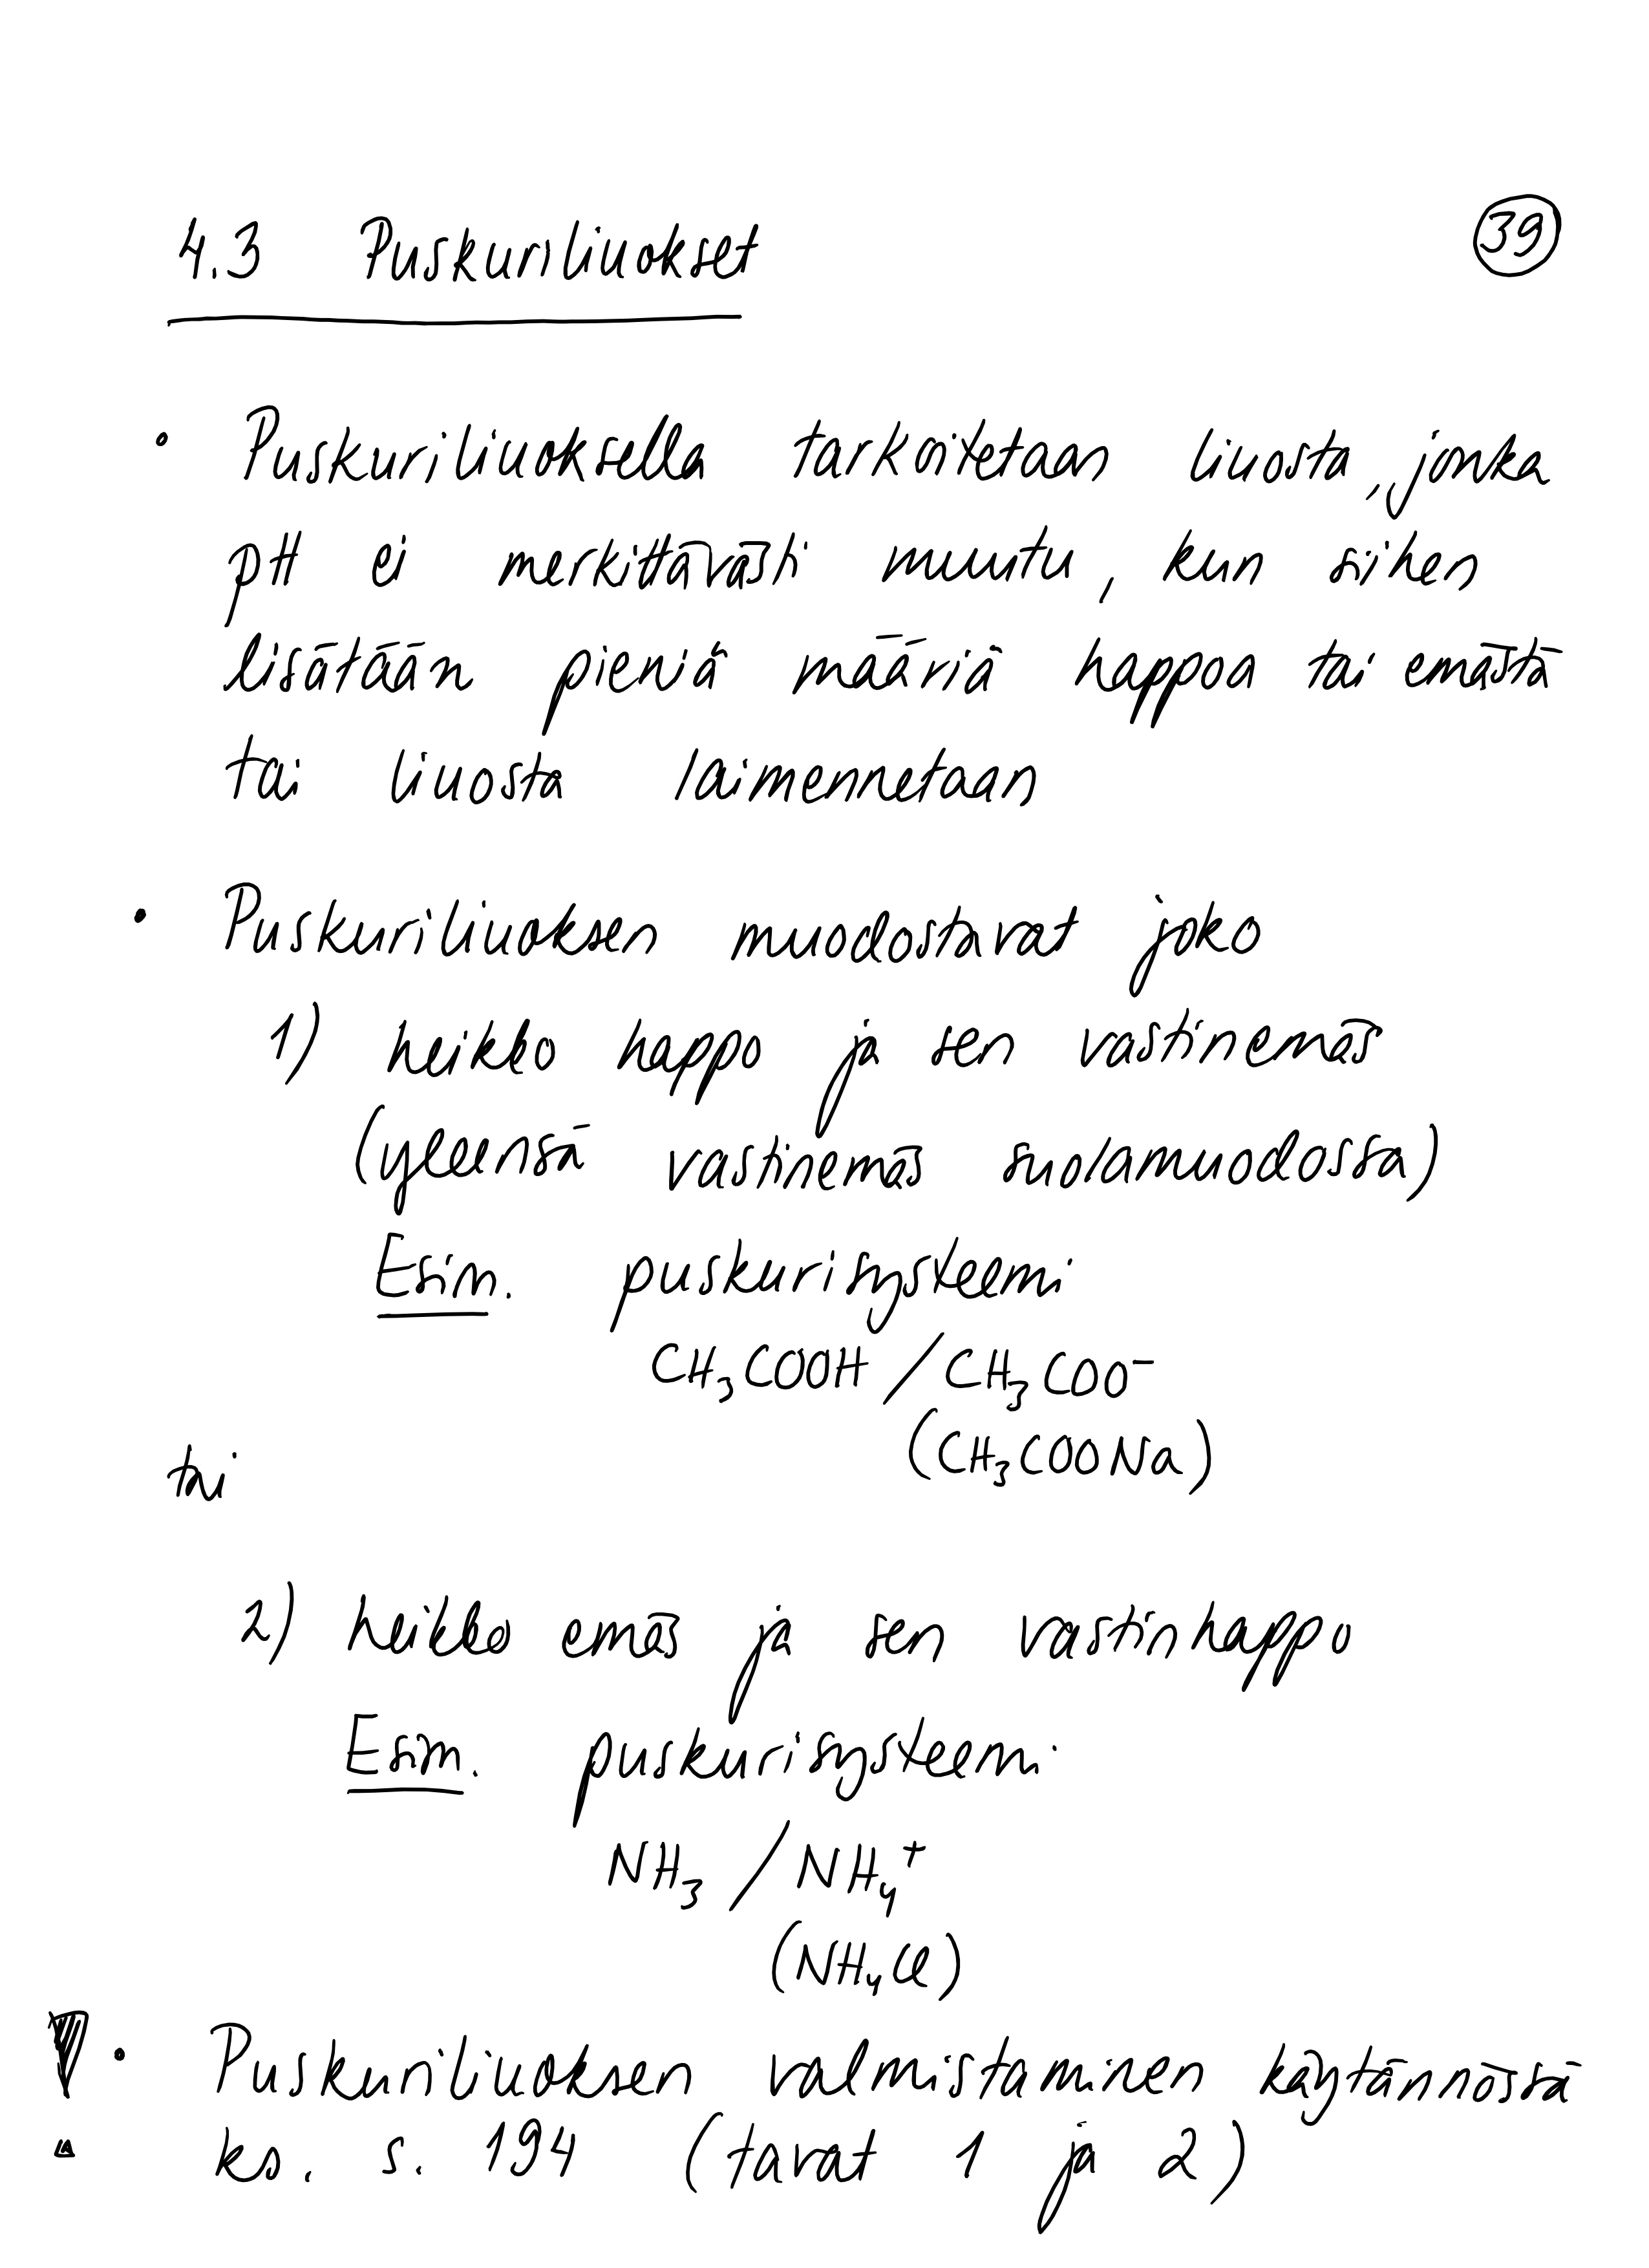 4.3 Puskuriliuokset
39
• Puskuriliuoksella tarkoitetaan liuosta, jonka
pH ei merkittävästi muutu, kun siihen
lisätään pieniä määriä happoa tai emästä
tai liuosta laimennetaan
• Puskuriliuoksen muodostavat joko
1) heikko happo ja sen vastinemäs
(yleensä vastinemäs suolamuodossa)
Esim. puskurisysteemi
CH₃COOH / CH₃COO⁻
(CH₃COONa)
tai
2) heikko emäs ja sen vastinhappo
Esim. puskurisysteemi
NH₃ / NH₄⁺
(NH₄Cl)
! • Puskuriliuoksen valmistaminen käytännössä
ks. s. 194 (tavat 1 ja 2)